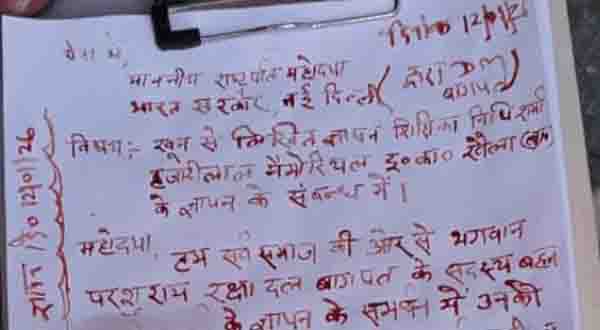 दि० 12/01/26
सेवा में,
माननीय राष्ट्रपति महोदया
भारत सरकार, नई दिल्ली (द्वारा DM बागपत)
विषय:- खून से लिखित ज्ञापन शिक्षिका निधि शर्मा
हजारीलाल मैमोरियल इ० का० खेला
के ज्ञापन के संबन्ध में।
महोदया, हम सर्व समाज की ओर से भगवान
परशुराम रक्षा दल बागपत के सदस्य बहन
के ज्ञापन के समर्थन में उनकी
ज्ञापन दि० 12/01/26